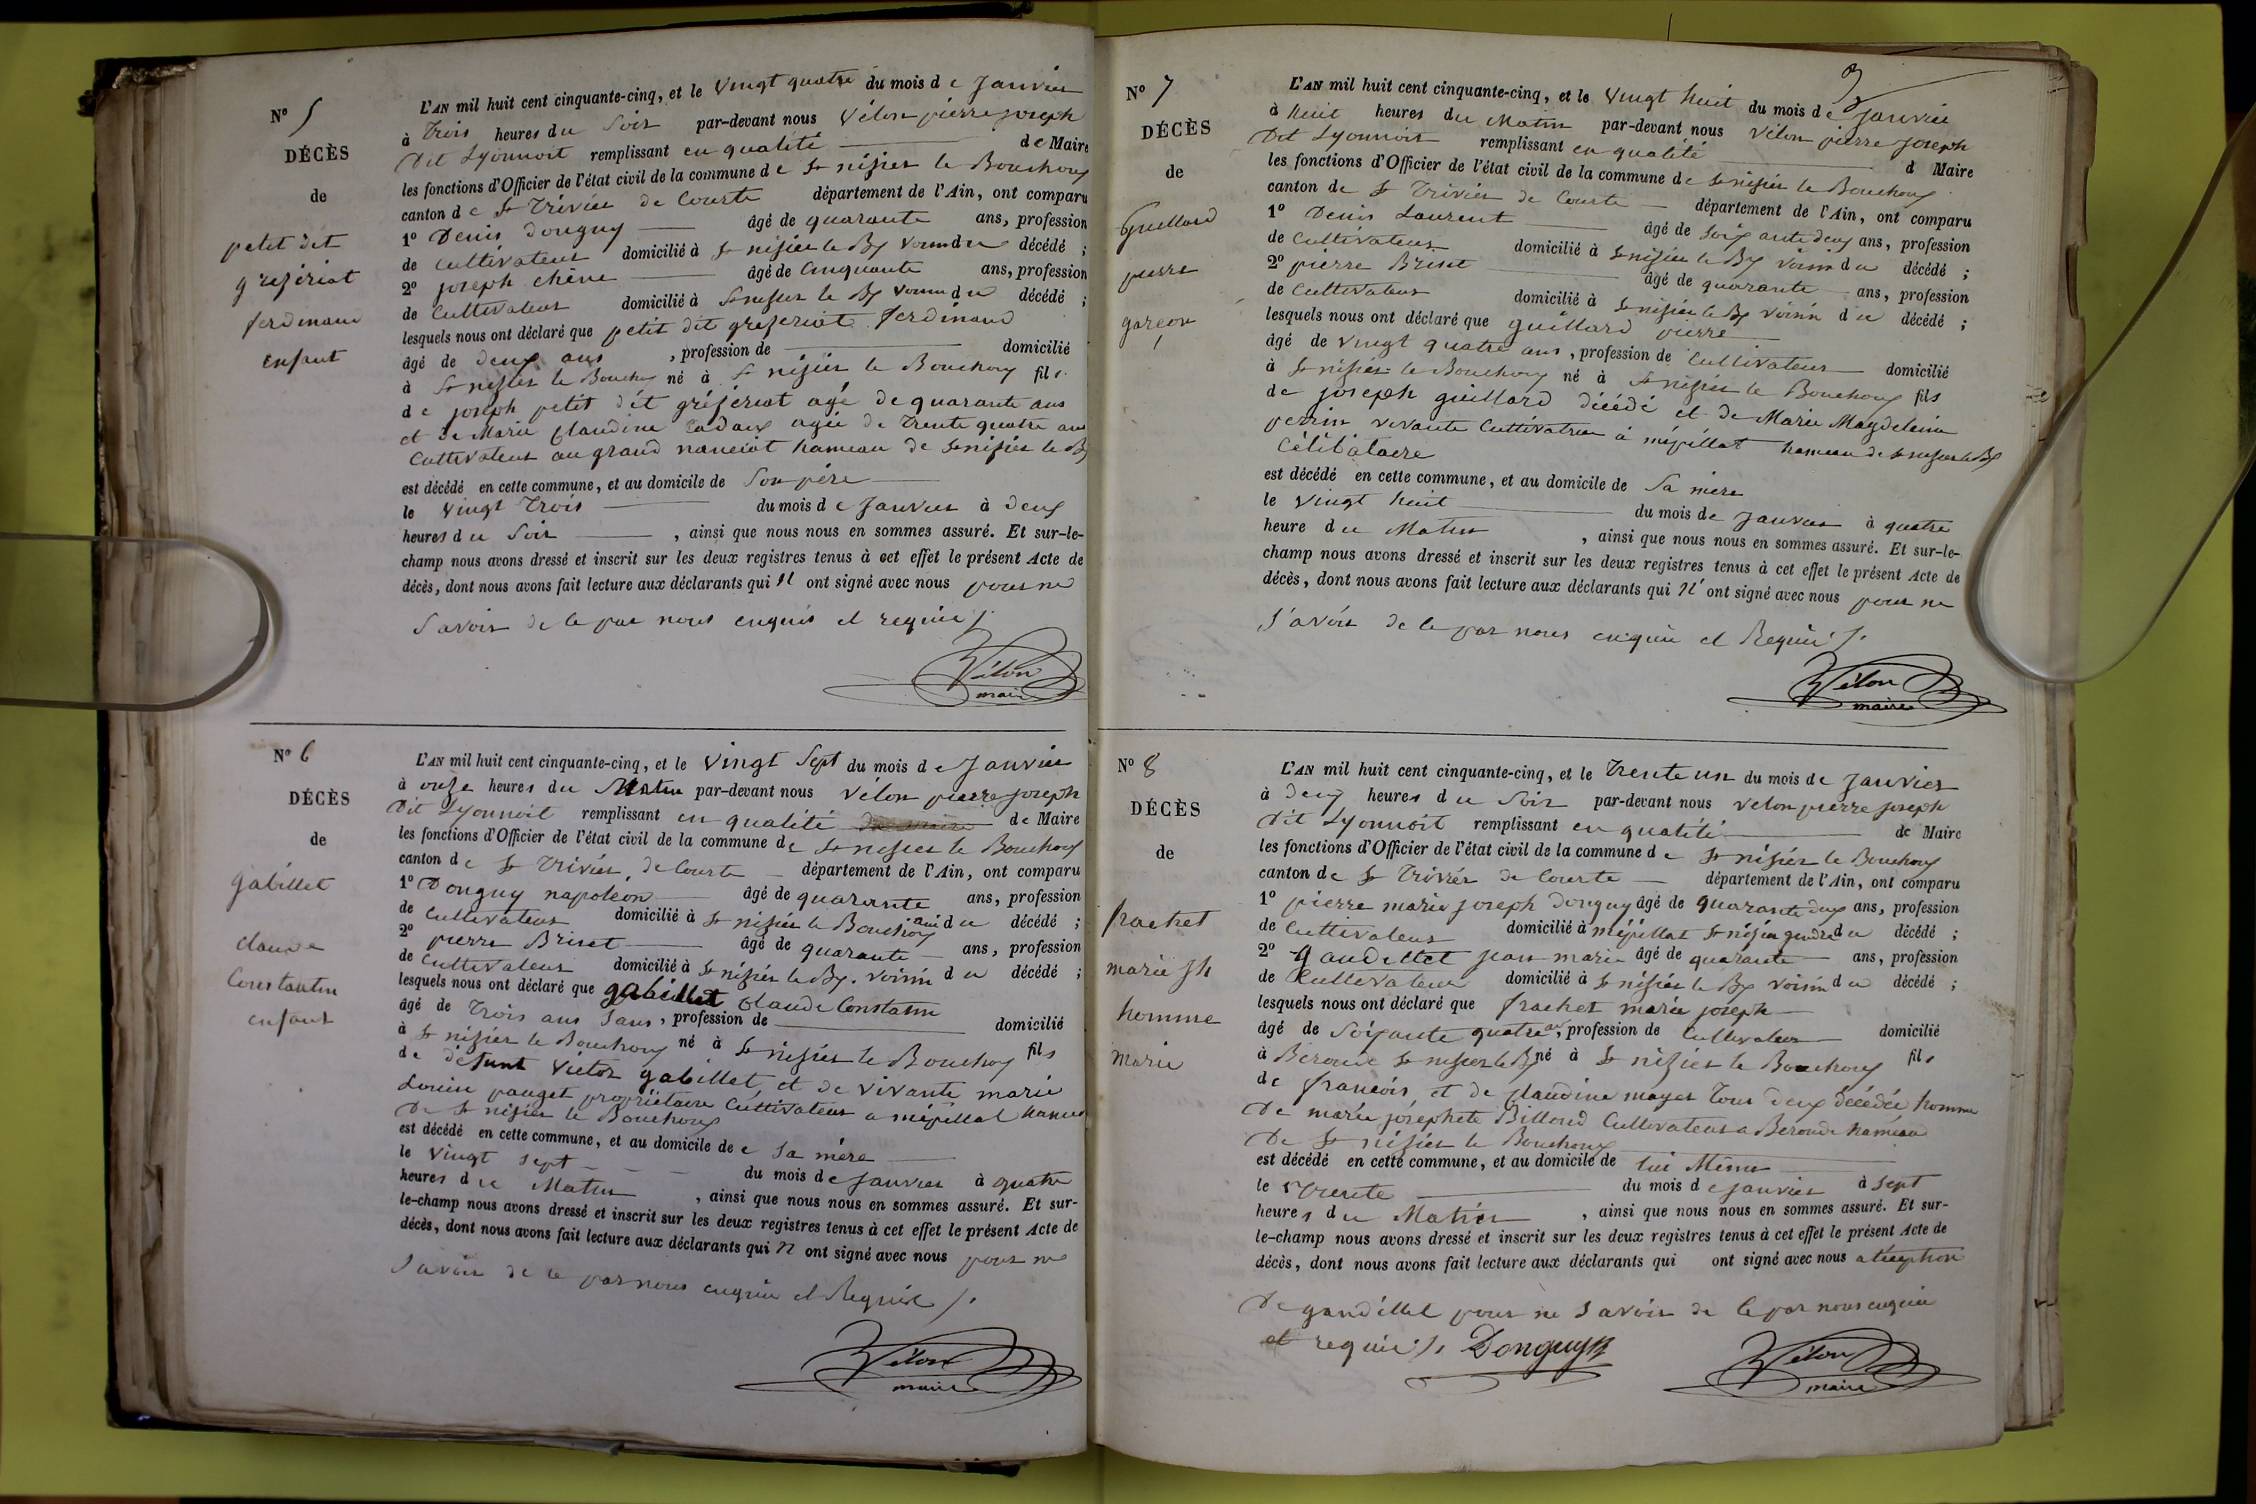 N° 5
DÉCÈS
de
petit dit
grézériat
ferdinand
enfant
L'AN mil huit cent cinquante-cinq, et le vingt quatre du mois de Janvier
à trois heures du Soir par-devant nous Vélon pierre joseph
Dit Lyonnoit remplissant en qualité de Maire
les fonctions d'Officier de l'état civil de la commune de St nizier le Bouchoux
canton de St Trivier de Courte département de l'Ain, ont comparu
1° Denis donguy âgé de quarante ans, profession
de Cultivateur domicilié à St nizier le Bx voisin du décédé ;
2° joseph chêne âgé de Cinquante ans, profession
de Cultivateur domicilié à St nizier le Bx voisin du décédé ;
lesquels nous ont déclaré que petit dit grezeriat ferdinand
âgé de deux ans , profession de domicilié
à St nizier le Bouchoux né à St nizier le Bouchoux fils
de joseph petit dit grézeriat agé de quarante ans
et de Marie Claudine agée de Trente quatre ans
Cultivateur au grand hameau de St nizier le Bx
est décédé en cette commune, et au domicile de Son père
le vingt Trois du mois de Janvier à deux
heures du Soir , ainsi que nous nous en sommes assuré. Et sur-le-
champ nous avons dressé et inscrit sur les deux registres tenus à cet effet le présent Acte de
décès, dont nous avons fait lecture aux déclarants qui N ont signé avec nous pour ne
Savoir de le par nous enquis et requis /.
Vélon
maire
N° 6
DÉCÈS
de
gabillet
claude
Constantin
enfant
L'AN mil huit cent cinquante-cinq, et le vingt Sept du mois de Janvier
à onze heures du Matin par-devant nous Vélon pierre joseph
Dit Lyonnoit remplissant en qualité de Maire
les fonctions d'Officier de l'état civil de la commune de St nizier le Bouchoux
canton de St Trivier de Courte département de l'Ain, ont comparu
1° Donguy napoléon âgé de quarante ans, profession
de Cultivateur domicilié à St nizier le Bouchoux ami du décédé ;
2° pierre Briset âgé de quarante ans, profession
de Cultivateur domicilié à St nizier le Bx. voisin du décédé ;
lesquels nous ont déclaré que gabillet Claude Constantin
âgé de Trois ans Sans , profession de domicilié
à St nizier le Bouchoux né à St nizier le Bouchoux fils
de défunt Victor gabillet et de vivante marie
Louise pauget propriétaire Cultivateur a mépillat hameau
De St nizier le Bouchoux
est décédé en cette commune, et au domicile de Sa mère
le vingt sept du mois de Janvier à quatre
heures du Matin , ainsi que nous nous en sommes assuré. Et sur-
le-champ nous avons dressé et inscrit sur les deux registres tenus à cet effet le présent Acte de
décès, dont nous avons fait lecture aux déclarants qui N ont signé avec nous pour ne
Savoir de le par nous enquis et Requis /.
Vélon
maire
3
N° 7
DÉCÈS
de
Guillard
pierre
garçon
L'AN mil huit cent cinquante-cinq, et le vingt huit du mois de Janvier
à huit heures du Matin par-devant nous Vélon pierre joseph
Dit Lyonnoit remplissant en qualité d Maire
les fonctions d'Officier de l'état civil de la commune de St nizier le Bouchoux
canton de St Trivier de Courte département de l'Ain, ont comparu
1° Denis Laurent âgé de Soixante deux ans, profession
de Cultivateur domicilié à St nizier le Bx voisin du décédé ;
2° pierre Briset âgé de quarante ans, profession
de Cultivateur domicilié à St nizier le Bx voisin du décédé ;
lesquels nous ont déclaré que guillard pierre
âgé de vingt quatre ans , profession de Cultivateur domicilié
à St nizier le Bouchoux né à St nizier le Bouchoux fils
de joseph guillard décédé et de Marie Magdeleine
perrin vivante Cultivatrice a mépillat hameau de St nizier le Bx
Célibataire
est décédé en cette commune, et au domicile de Sa mère
le vingt huit du mois de Janvier à quatre
heure du Matin , ainsi que nous nous en sommes assuré. Et sur-le-
champ nous avons dressé et inscrit sur les deux registres tenus à cet effet le présent Acte de
décès, dont nous avons fait lecture aux déclarants qui N' ont signé avec nous pour ne
Savoir de le par nous enquis et Requis /.
Vélon
maire
N° 8
DÉCÈS
de
frachet
marie Jh
homme
marié
L'AN mil huit cent cinquante-cinq, et le Trente un du mois de Janvier
à deux heures du Soir par-devant nous Vélon pierre joseph
Dit Lyonnoit remplissant en qualité de Maire
les fonctions d'Officier de l'état civil de la commune de St nizier le Bouchoux
canton de St Trivier de Courte département de l'Ain, ont comparu
1° pierre marie joseph donguy âgé de quarante deux ans, profession
de Cultivateur domicilié à mépillat St nizier gendre du décédé ;
2° gaudillet jean marie âgé de quarante ans, profession
de Cultivateur domicilié à St nizier le Bx voisin du décédé ;
lesquels nous ont déclaré que frachet marie joseph
âgé de Soixante quatre ans, profession de Cultivateur domicilié
à Beroude St nizier le Bx né à St nizier le Bouchoux fils
de françois et de Claudine mayet Tous deux décédés homme
De marie josephete Billoud Cultivateur a Beroude hameau
De St nizier le Bouchoux
est décédé en cette commune, et au domicile de lui Même
le Trente du mois de Janvier à Sept
heures du Matin , ainsi que nous nous en sommes assuré. Et sur-
le-champ nous avons dressé et inscrit sur les deux registres tenus à cet effet le présent Acte de
décès, dont nous avons fait lecture aux déclarants qui ont signé avec nous
De gaudillet pour ne Savoir de le par nous enquis
et requis /. Donguy
Vélon
maire